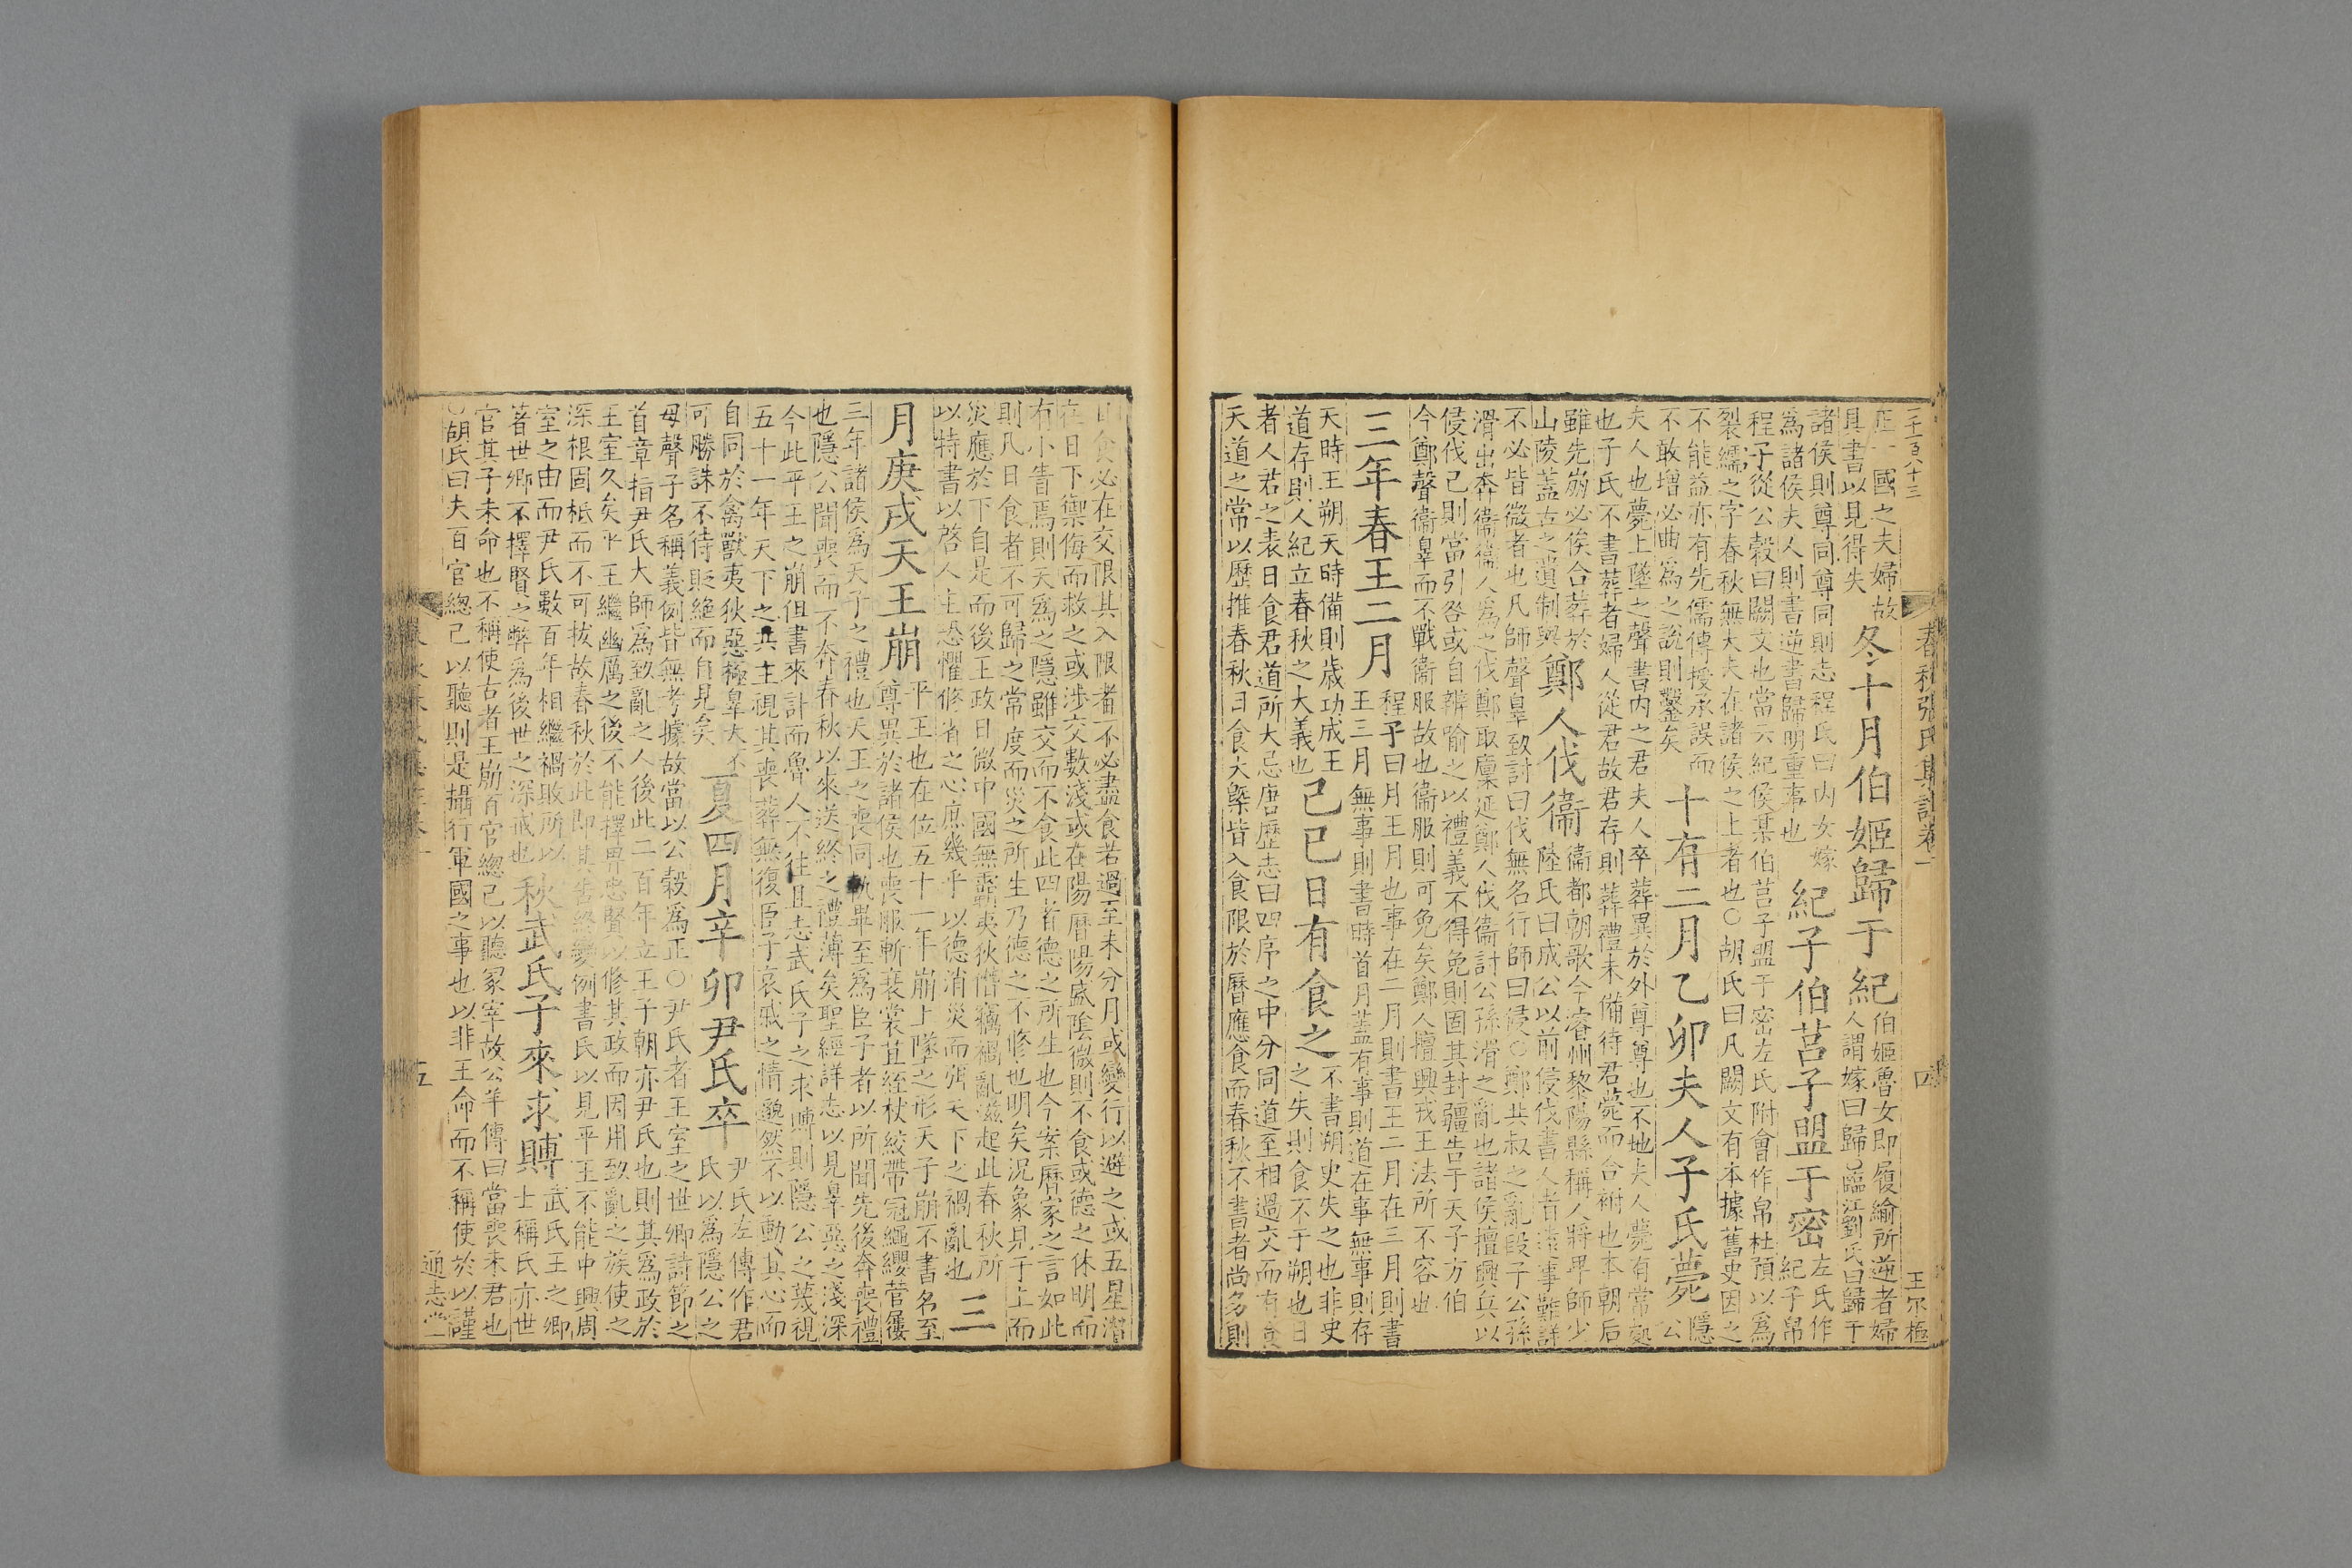 春秋張氏集註卷一
四
王尔極
二千一百八十三
正一國之夫婦故
具書以見得失
冬十月伯姬歸于紀
伯姬魯女即履緰所逆者婦
人謂嫁曰歸○臨江劉氏曰歸于
諸侯則尊同尊同則志程氏曰內女嫁
為諸侯夫人則書逆書歸明重事也
紀子伯莒子盟于密
左氏作
紀子帛
程子從公穀曰闕文也當云紀侯某伯莒子盟于密左氏附會作帛杜預以為
裂繻之字春秋無大夫在諸侯之上者也○胡氏曰凡闕文有本據舊史因之
不能益亦有先儒傳授承誤而
不敢增必曲為之說則鑿矣
十有二月乙卯夫人子氏薨
隱
公
夫人也薨上墜之聲書內之君夫人卒葬異於外尊尊也不地夫人薨有常處
也子氏不書葬者婦人從君故君存則葬禮未備待君薨而合祔也本朝后
雖先崩必俟合葬於
山陵蓋古之遺制與
鄭人伐衞
衞都朝歌今濬州黎陽縣稱人將卑師少
陸氏曰成公以前侵伐書人者遠事難詳
不必皆微者也凡師聲辠致討曰伐無名行師曰侵○鄭共叔之亂段子公孫
滑出奔衞衞人為之伐鄭取廩延鄭人伐衞討公孫滑之亂也諸侯擅興兵以
侵伐已則當引咎或自辨喻之以禮義不得免則固其封疆告于天子方伯
今鄭聲衞辠而不戰衞服故也衞服則可免矣鄭人擅興戎王法所不容也
三年春王二月
程子曰月王月也事在二月則書王二月在三月則書
王三月無事則書時首月蓋有事則道在事無事則存
天時王朔天時備則歲功成王
道存則人紀立春秋之大義也
己巳日有食之
不書朔史失之也非史
之失則食不于朔也日
者人君之表日食君道所大忌唐歷志曰四序之中分同道至相過交而有食
天道之常以歷推春秋日食大槩皆入食限於曆應食而春秋不書者尚多則
日食必在交限其入限者不必盡食若過至未分月或變行以避之或五星潛
在日下禦侮而救之或涉交數淺或在陽曆陽盛陰微則不食或德之休明而
有小眚焉則天為之隱雖交而不食此四者德之所生也今案曆家之言如此
則凡日食者不可歸之常度而災之所生乃德之不修也明矣況象見于上而
災應於下自是而後王政日微中國無霸夷狄僭竊禍亂滋起此春秋所
以特書以啓人主恐懼修省之心庶幾乎以德消災而弭天下之禍亂也
三
月庚戌天王崩
平王也在位五十一年崩上墜之形天子崩不書名至
尊異於諸侯也喪服斬衰裳苴絰杖絞帶冠繩纓菅屨
三年諸侯為天子之禮也天王之喪同軌畢至為臣子者以所聞先後奔喪禮
也隱公聞喪而不奔春秋以來送終之禮薄矣聖經詳志以見辠惡之淺深
今此平王之崩但書來訃而魯人不往且志武氏子之求賻則隱公之蔑視
五十一年天下之共主視其喪葬無復臣子哀戚之情邈然不以動其心而
自同於禽獸夷狄惡極辠大不
可勝誅不待貶絶而自見矣
夏四月辛卯尹氏卒
尹氏左傳作君
氏以為隱公之
母聲子名稱義例皆無考據故當以公穀為正○尹氏者王室之世卿詩節之
首章指尹氏大師為致亂之人後此二百年立王子朝亦尹氏也則其為政於
王室久矣平王繼幽厲之後不能擇畀忠賢以修其政而因用致亂之族使之
深根固柢而不可拔故春秋於此即其告終變例書氏以見平王不能中興周
室之由而尹氏數百年相繼禍敗所以
著世卿不擇賢之弊為後世之深戒也
秋武氏子來求賻
武氏王之卿
士稱氏亦世
官其子未命也不稱使古者王崩百官緫己以聽冢宰故公羊傳曰當喪未君也
○胡氏曰夫百官緫己以聽則是攝行軍國之事也以非王命而不稱使於以謹
五
通志堂